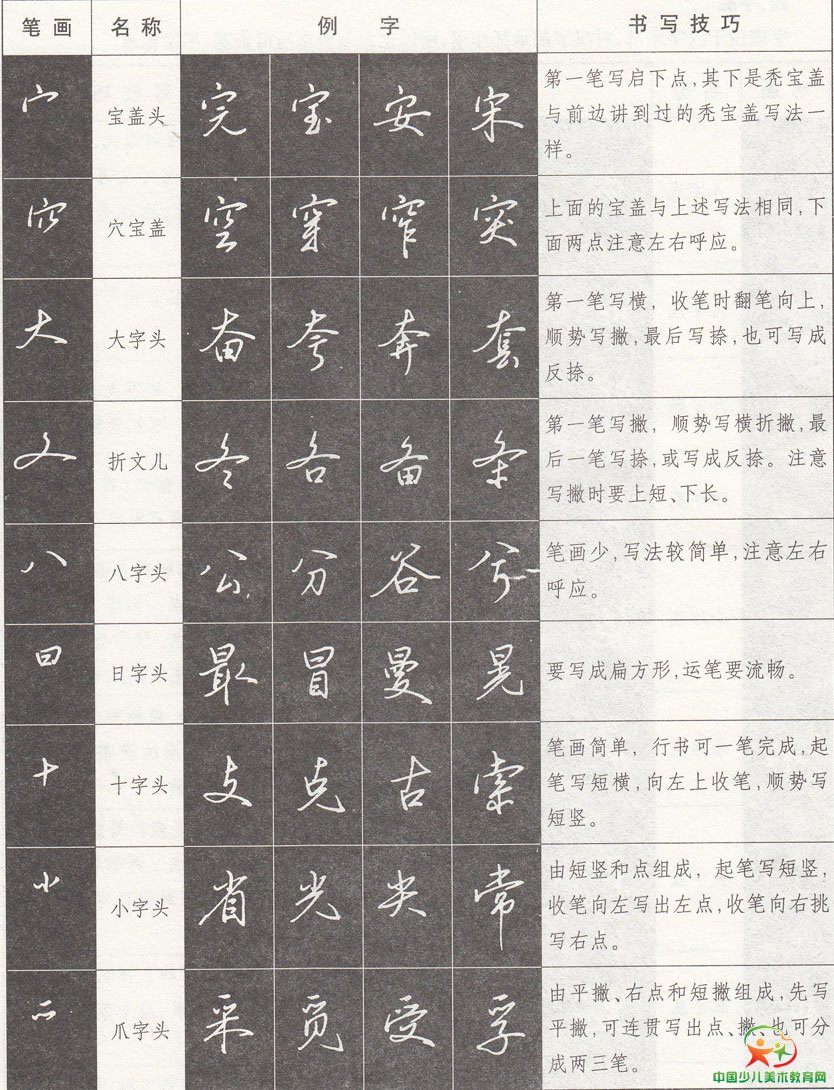 笔画 名称 例字 书写技巧
宀 宝盖头 完 宝 安 宋
第一笔写启下点,其下是秃宝盖
与前边讲到过的秃宝盖写法一
样。
穴 穴宝盖 空 穿 窄 突
上面的宝盖与上述写法相同,下
面两点注意左右呼应。
大 大字头 奋 夸 奔 套
第一笔写横，收笔时翻笔向上,
顺势写撇,最后写捺,也可写成
反捺。
夂 折文儿 冬 各 备 条
第一笔写撇，顺势写横折撇,最
后一笔写捺,或写成反捺。注意
写撇时要上短、下长。
八 八字头 公 分 谷 兮
笔画少,写法较简单,注意左右
呼应。
日 日字头 最 冒 曼 晃
要写成扁方形,运笔要流畅。
十 十字头 支 克 古 索
笔画简单，行书可一笔完成,起
笔写短横,向左上收笔,顺势写
短竖。
小字头 省 光 尖 常
由短竖和点组成，起笔写短竖,
收笔向左写出左点,收笔向右挑
写右点。
爫 爪字头 采 觅 受 孚
由平撇、右点和短撇组成,先写
平撇,可连贯写出点、撇、也可分
成两三笔。
中国少儿美术教育网